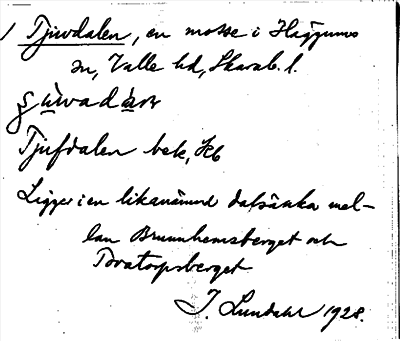 1 Tjuvdalen, en mosse i Häggums
sn, Valle hd, Skarab. l.
Tjufdalen bek, Hb
Ligger i en likanämnd dalsänka mel-
lan Brunnhemsberget och
Bratorpsberget
J. Lundahl 1928.